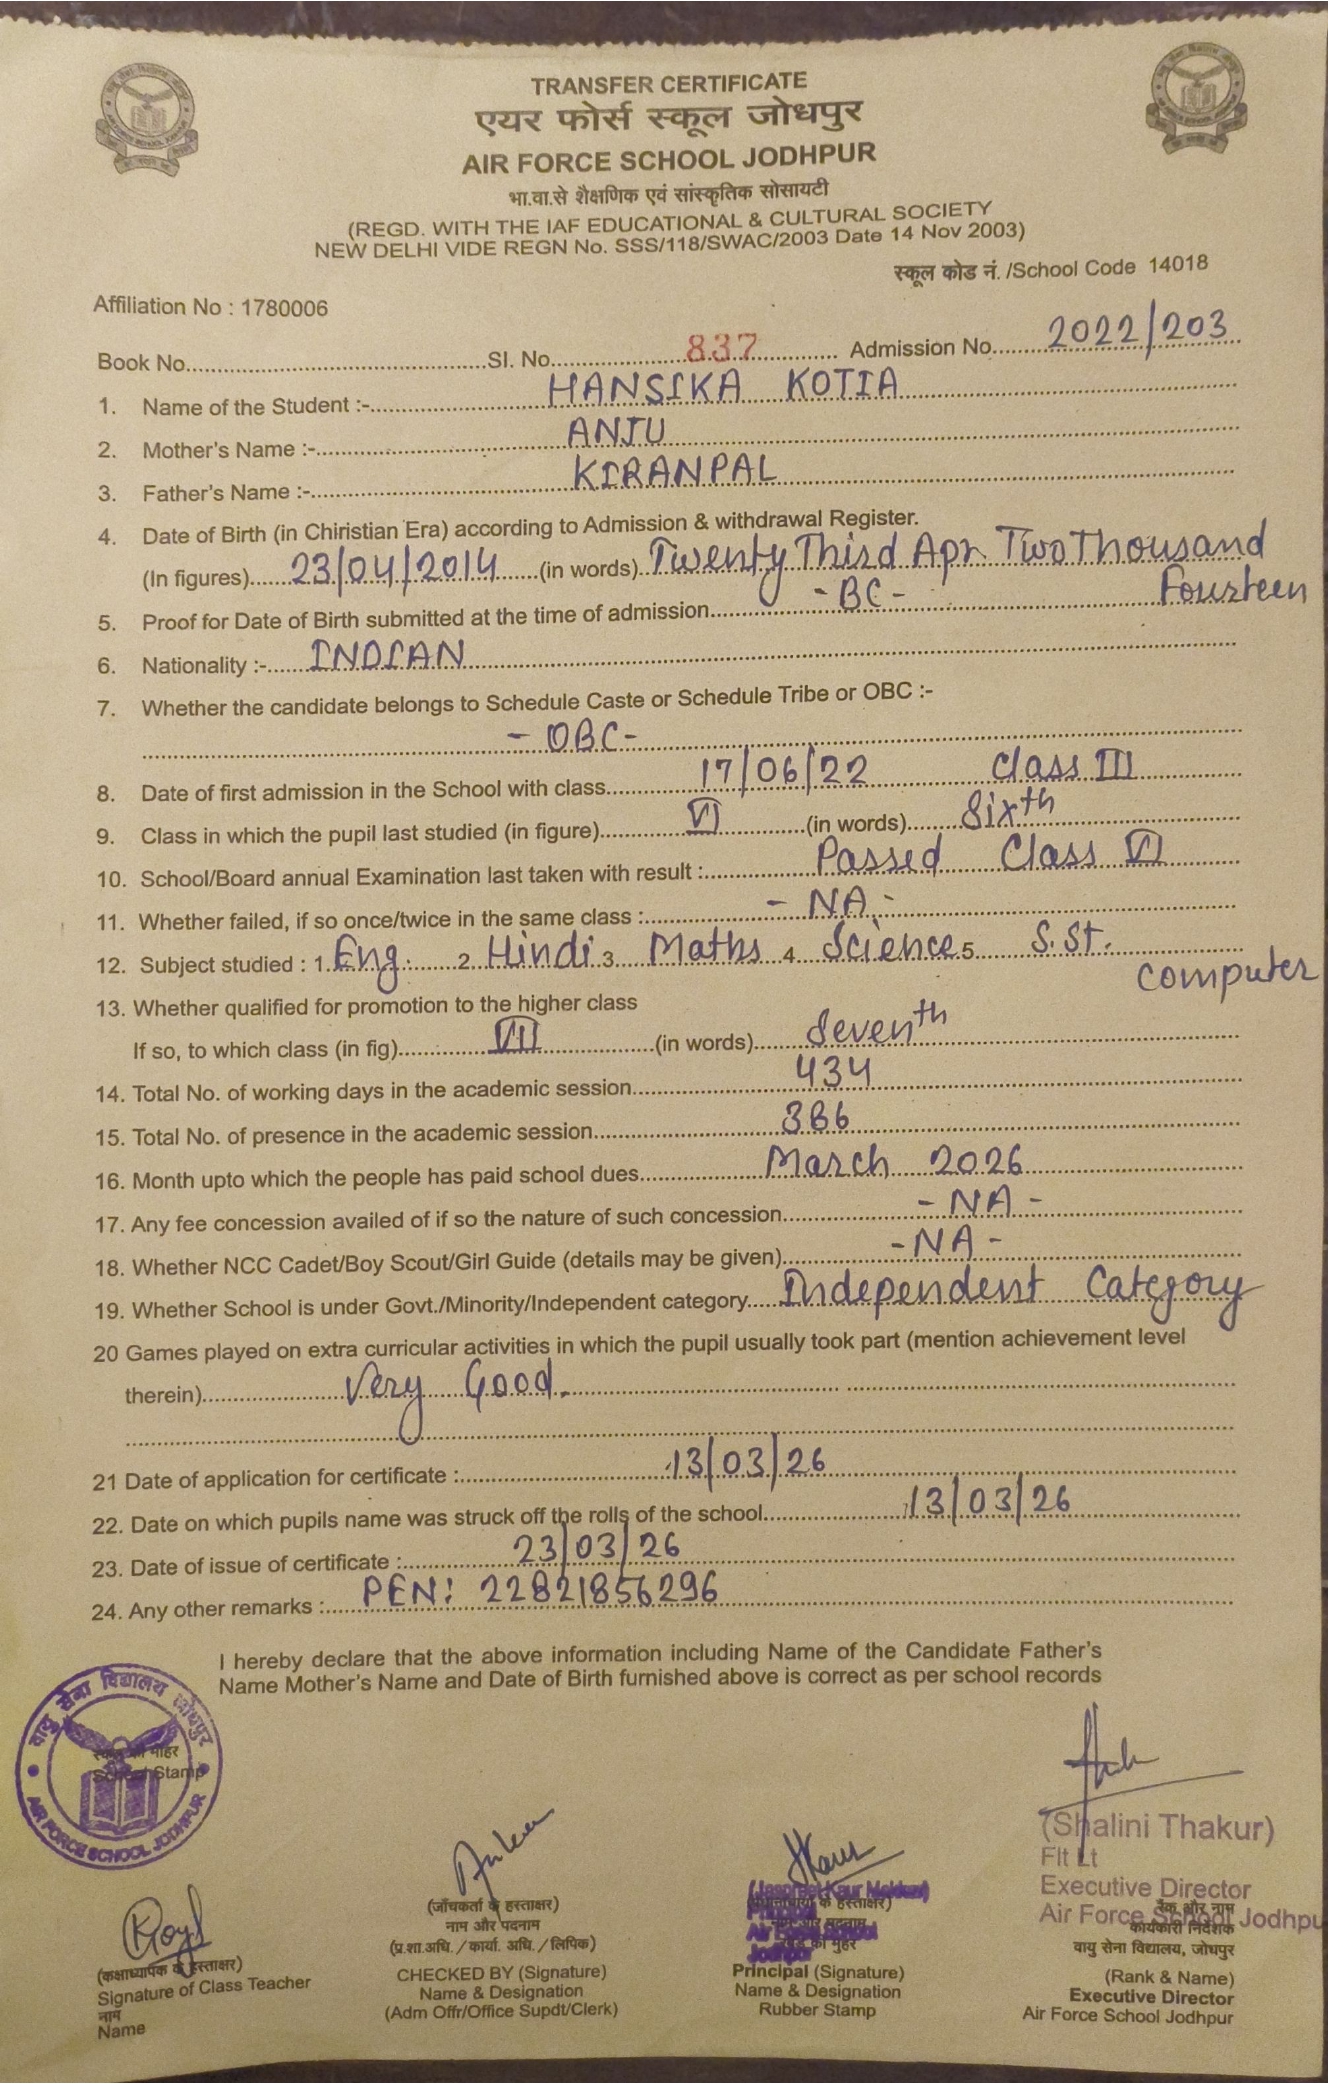 TRANSFER CERTIFICATE
एयर फोर्स स्कूल जोधपुर
AIR FORCE SCHOOL JODHPUR
भा.वा.से शैक्षणिक एवं सांस्कृतिक सोसायटी
(REGD. WITH THE IAF EDUCATIONAL & CULTURAL SOCIETY
NEW DELHI VIDE REGN No. SSS/118/SWAC/2003 Date 14 Nov 2003)
स्कूल कोड नं. /School Code 14018
Affiliation No : 1780006
Book No. Sl. No. 837 Admission No. 2022/203
1. Name of the Student :- HANSIKA KOTIA
2. Mother's Name :- ANJU
3. Father's Name :- KIRANPAL
4. Date of Birth (in Chiristian Era) according to Admission & withdrawal Register.
(In figures) 23/04/2014 (in words) Twenty Third Apr Two Thousand
Fourteen
5. Proof for Date of Birth submitted at the time of admission - BC -
6. Nationality :- INDIAN
7. Whether the candidate belongs to Schedule Caste or Schedule Tribe or OBC :-
- OBC -
8. Date of first admission in the School with class 17/06/22 Class III
9. Class in which the pupil last studied (in figure) VI (in words) Sixth
10. School/Board annual Examination last taken with result : Passed Class VI
11. Whether failed, if so once/twice in the same class : - NA -
12. Subject studied : 1. Eng. 2. Hindi 3. Maths 4 Science 5 S.St.
Computer
13. Whether qualified for promotion to the higher class
If so, to which class (in fig) VII (in words) Seventh
14. Total No. of working days in the academic session 434
15. Total No. of presence in the academic session 386
16. Month upto which the people has paid school dues March 2026
17. Any fee concession availed of if so the nature of such concession - NA -
18. Whether NCC Cadet/Boy Scout/Girl Guide (details may be given) - NA -
19. Whether School is under Govt./Minority/Independent category Independent Category
20 Games played on extra curricular activities in which the pupil usually took part (mention achievement level
therein) Very Good.
21 Date of application for certificate : 13/03/26
22. Date on which pupils name was struck off the rolls of the school 13/03/26
23. Date of issue of certificate : 23/03/26
24. Any other remarks : PEN: 22821856296
I hereby declare that the above information including Name of the Candidate Father's
Name Mother's Name and Date of Birth furnished above is correct as per school records
वायु सेना विद्यालय जोधपुर
School Stamp
AIR FORCE SCHOOL JODHPUR
(कक्षाध्यापक के हस्ताक्षर)
Signature of Class Teacher
नाम
Name
(जाँचकर्ता के हस्ताक्षर)
नाम और पदनाम
(प्र.शा.अधि. / कार्या. अधि. / लिपिक)
CHECKED BY (Signature)
Name & Designation
(Adm Offr/Office Supdt/Clerk)
Principal (Signature)
Name & Designation
Rubber Stamp
(Shalini Thakur)
Flt Lt
Executive Director
Air Force School Jodhpu
रैंक और नाम
कार्यकारी निदेशक
वायु सेना विद्यालय, जोधपुर
(Rank & Name)
Executive Director
Air Force School Jodhpur